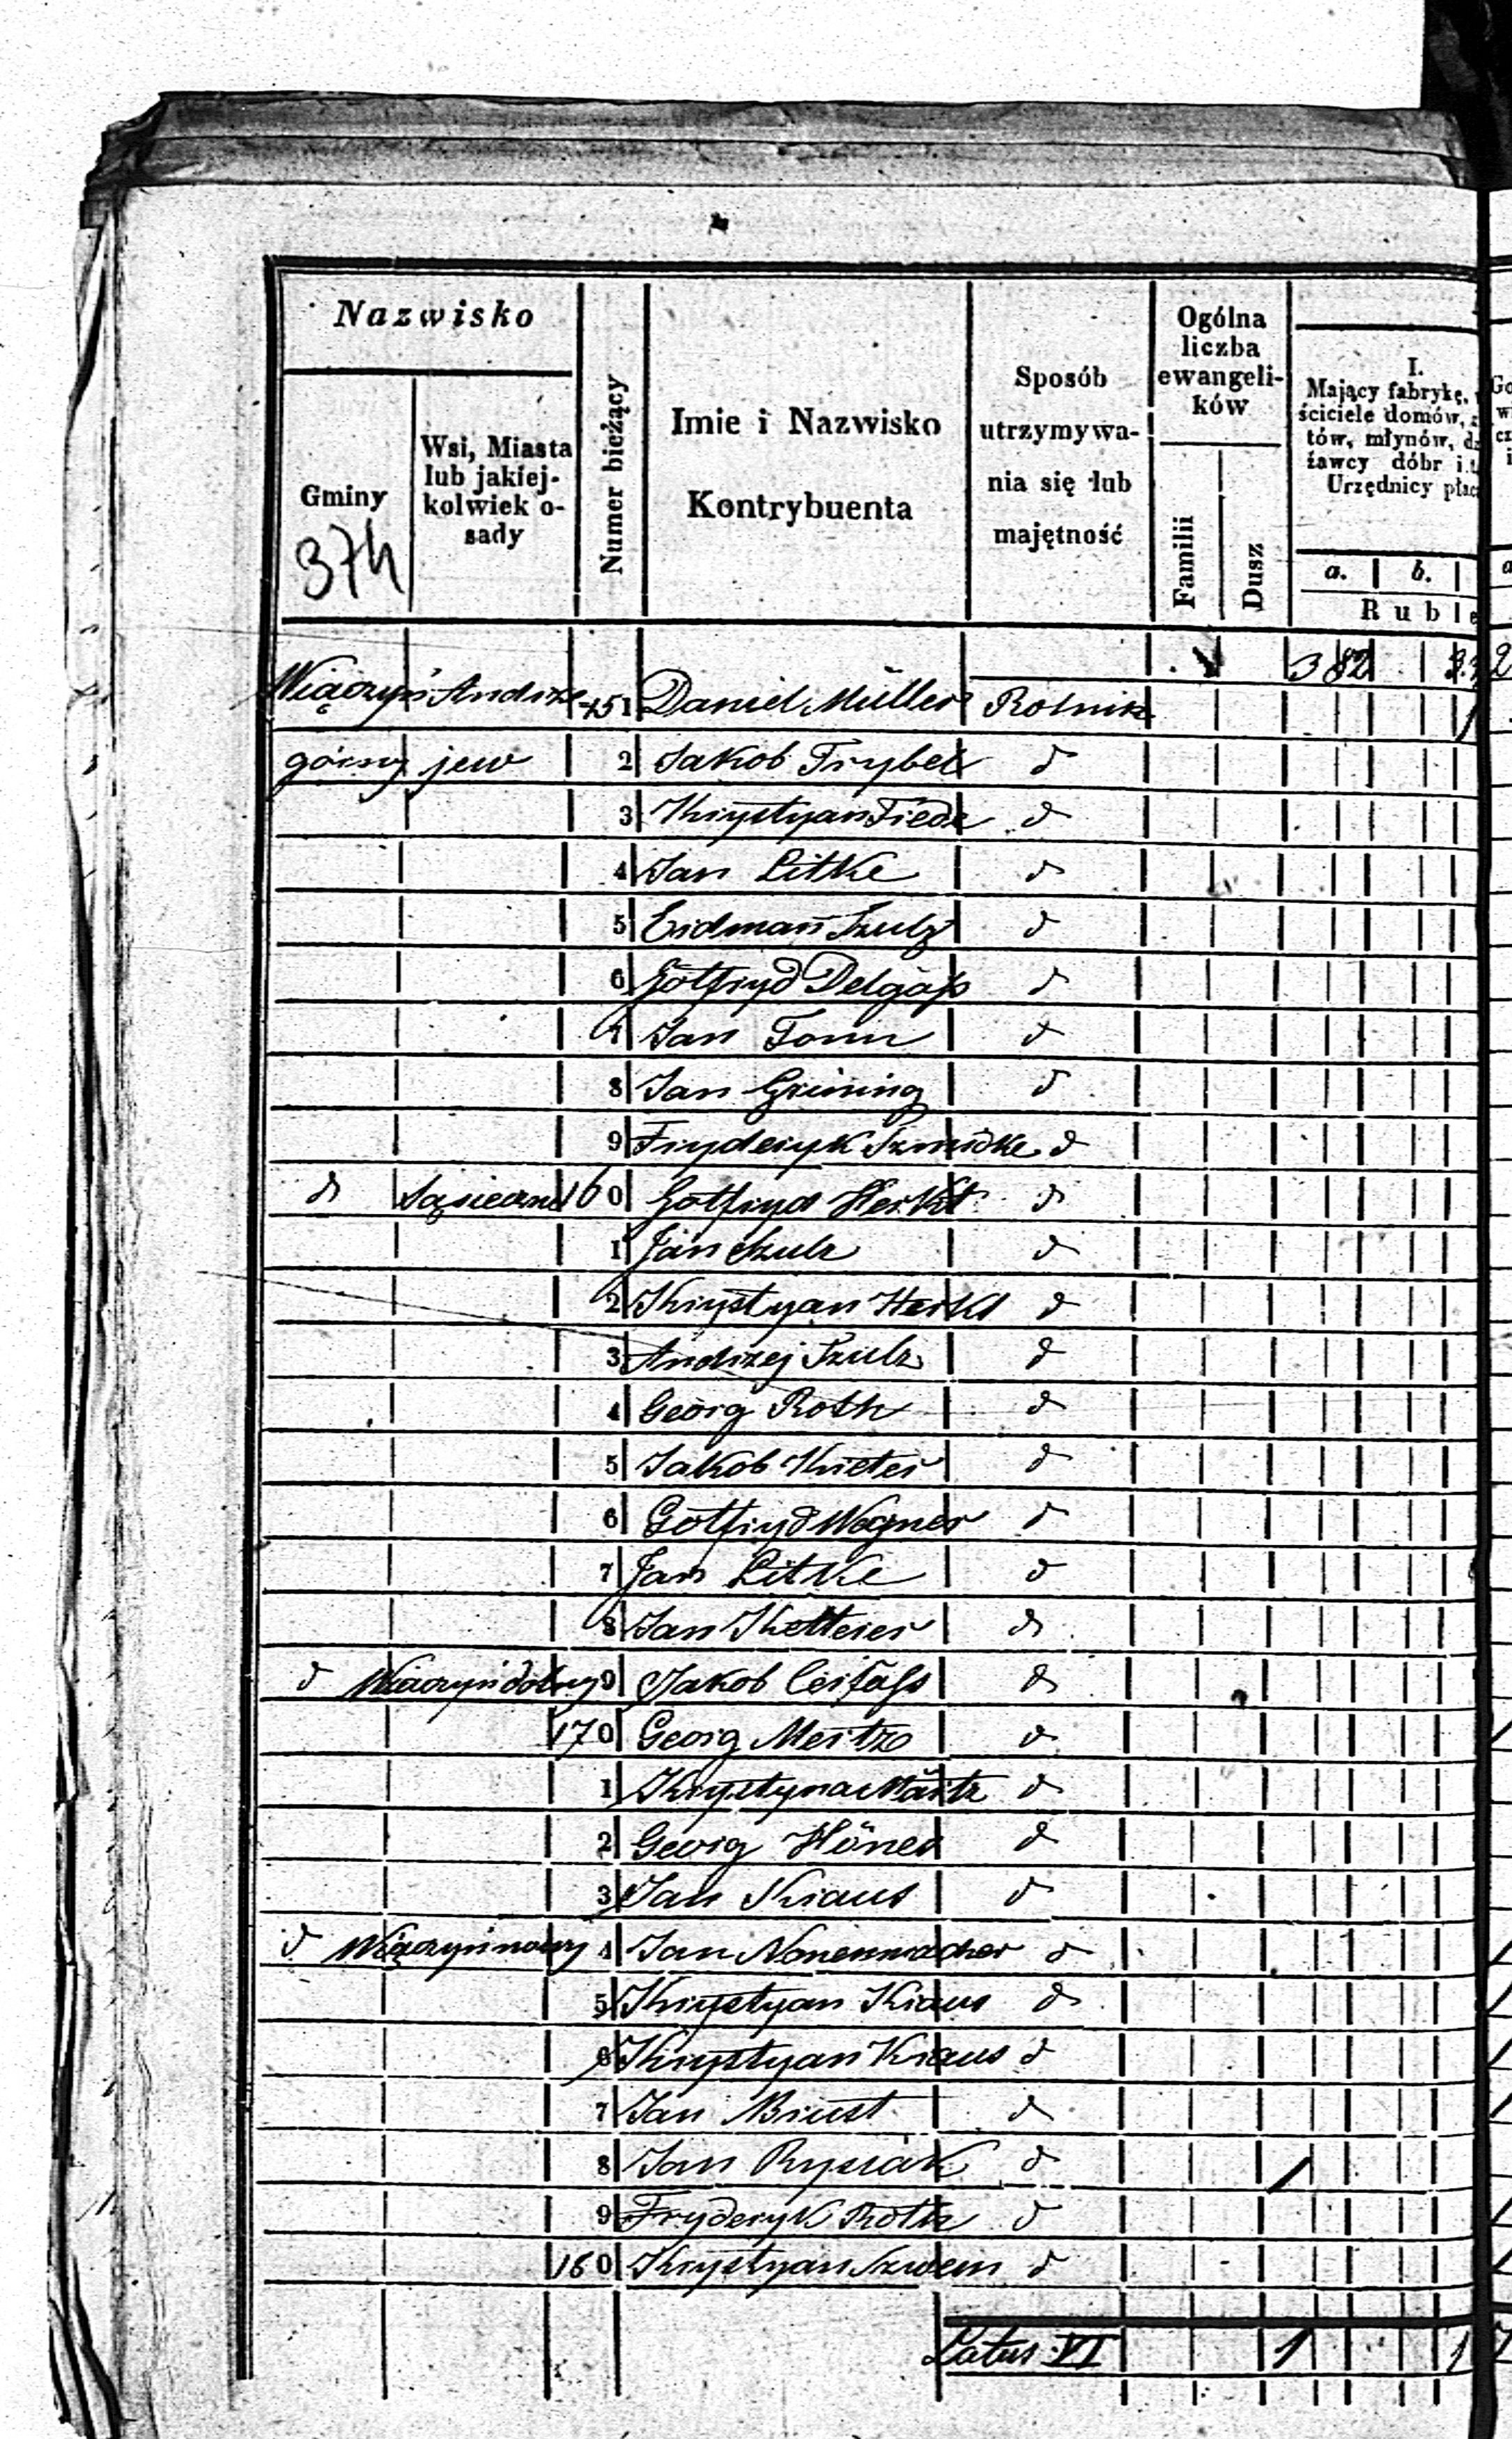 Nazwisko
Gminy
374
Wsi, Miasta
lub jakiej-
kolwiek o-
sady
Numer bieżący
Imie i Nazwisko
Kontrybuenta
Sposób
utrzymywa-
nia się lub
majętność
Ogólna
liczba
ewangeli-
ków
Familii
Dusz
I.
Mający fabrykę,
ściciele domów,
tów, młynów,
żawcy dóbr i.
Urzędnicy
a. b.
Ruble
3 82
Wiączyń Andrze 151 Daniel Müller Rolnik
górny jew 2 Jakob Frybel d
3 Krystyan Fiede d
4 Jan Litke d
5 Erdman Szulz d
6 Gotfryd Delgass d
7 Jan Tonn d
8 Jan Grüning d
9 Fryderyk Szmidke d
d Sąsieczno 160 Gotfryd Herkt d
1 Jan Szulz d
2 Krystyan Herkt d
3 Andrzej Szulz d
4 Georg Roth d
5 Jakob Krieter d
6 Gotfryd Wagner d
7 Jan Litke d
8 Jan Ketterer d
d Wiączyń dolny 9 Jakob d
170 Georg Mertz d
1 Krystyna Märtz d
2 Georg Höner d
3 Jan Kraus d
d Wiączyń nowy 4 Jan Nonenmacher d
5 Krystyan Kraus d
6 Krystyan Kraus d
7 Jan Brust d
8 Jan Rysiak d
9 Fryderyk Roth d
180 Krystyan Szwem d
Latus VI 1 1